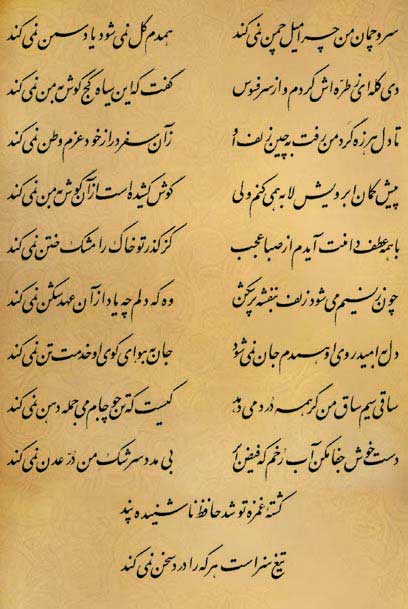 سرو چمان من چرا میل چمن نمی‌کند همدم گل نمی‌شود یاد سمن نمی‌کند
دی گله‌ای ز طره‌اش کردم و از سر فسوس گفت که این سیاه کج گوش به من نمی‌کند
تا دل هرزه گرد من رفت به چین زلف او زآن سفر دراز خود عزم وطن نمی‌کند
پیش کمان ابرویش لابه همی‌کنم ولی گوش کشیده است از آن گوش به من نمی‌کند
با همه عطف دامنت آیدم از صبا عجب کز گذر تو خاک را مشک ختن نمی‌کند
چون ز نسیم می‌شود زلف بنفشه پرشکن وه که دلم چه یاد از آن عهدشکن نمی‌کند
دل به امید روی او همدم جان نمی‌شود جان به هوای کوی او خدمت تن نمی‌کند
ساقی سیم ساق من گر همه درد می‌دهد کیست که تن چو جام می جمله دهن نمی‌کند
دستخوش جفا مکن آب رخم که فیض ابر بی مدد سرشک من در عدن نمی‌کند
کشتهٔ غمزه تو شد حافظ ناشنیده پند
تیغ سزاست هر که را درد سخن نمی‌کند